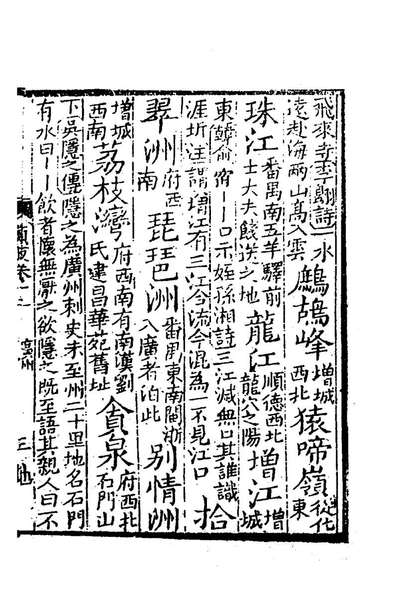 飛來寺李翺詩一水
遠赴海兩山高入雲
鷓鴣峰
增城
西北
猿啼嶺
從化
東
珠江
番禺南五羊驛前
士大夫餞送之地
龍江
順德西北
龍穴之陽
增江
增
城
東韓俞宿——口示姪孫湘詩三江減無口其誰識
涯圻注謂增江有三江今流今混為一不見江口
拾
翠洲
府西
南
琵琶洲
番禺東南閩舫
入廣者泊此
别情洲
增城
西南
荔枝灣
府西南有南漢劉
氏建昌華苑舊址
貪泉
府西北
石門山
下吳隱之傳隱之為廣州刺史未至州二十里地名石門
有水曰——飲者懷無厭之欲隱之既至語其親人曰不
卷
廣州
三